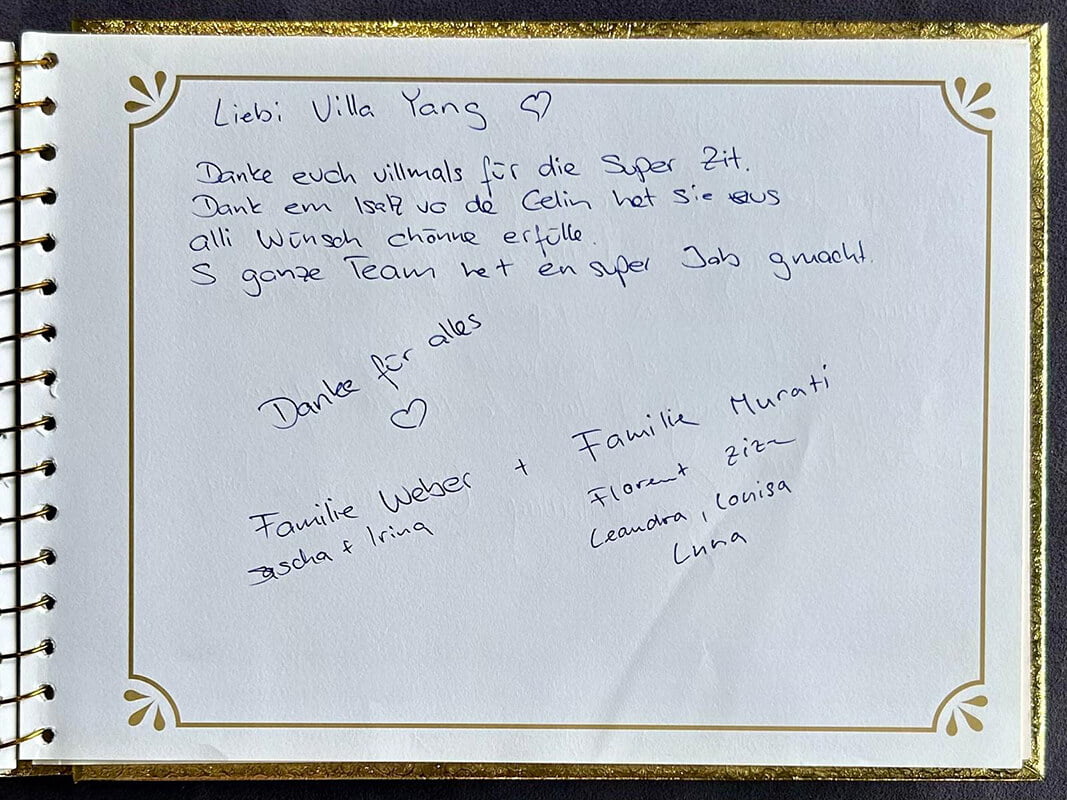 Liebi Villa Yang ♡
Danke euch villmals für die Super Zit.
Dank em Isatz vo de Celin het sie eus
alli Wünsch chönne erfülle.
S ganze Team het en super Job gmacht.
Danke für alles
♡
Familie Weber + Familie Murati
Sascha + Irina
Florent
Leandra, Louisa
Luna